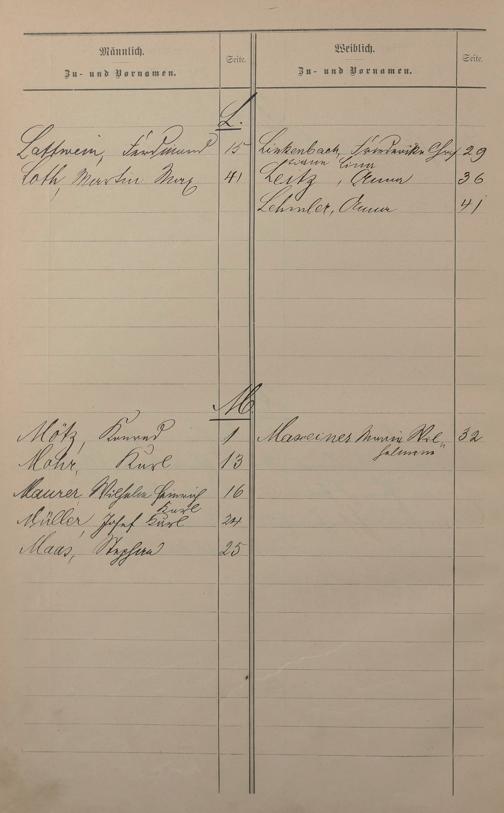 Männlich.
Zu- und Vornamen.
Seite.
Weiblich.
Zu- und Vornamen.
Seite.
L.
Lattwein, Ferdinand 15
Loth, Martin Max 41
Linkenbach, Friederike 29
Leitz, Anna 36
Lehmler, Anna 41
M
Mötz, Konrad 1
Mohr, Karl 13
Maurer Wilhelm Heinrich 16
Karl
Müller, Josef Karl 24
Maas, Stephan 25
Maxeiner Maria Wil- 32
helmine